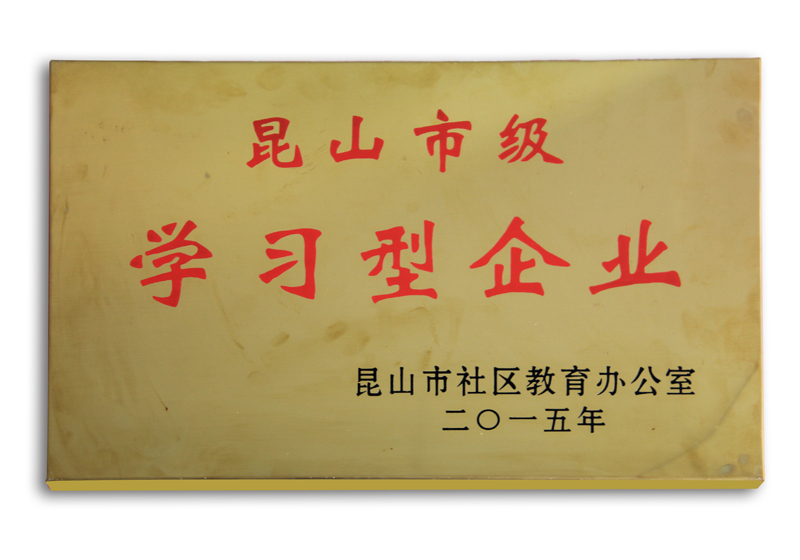 昆山市级
学习型企业
昆山市社区教育办公室
二〇一五年